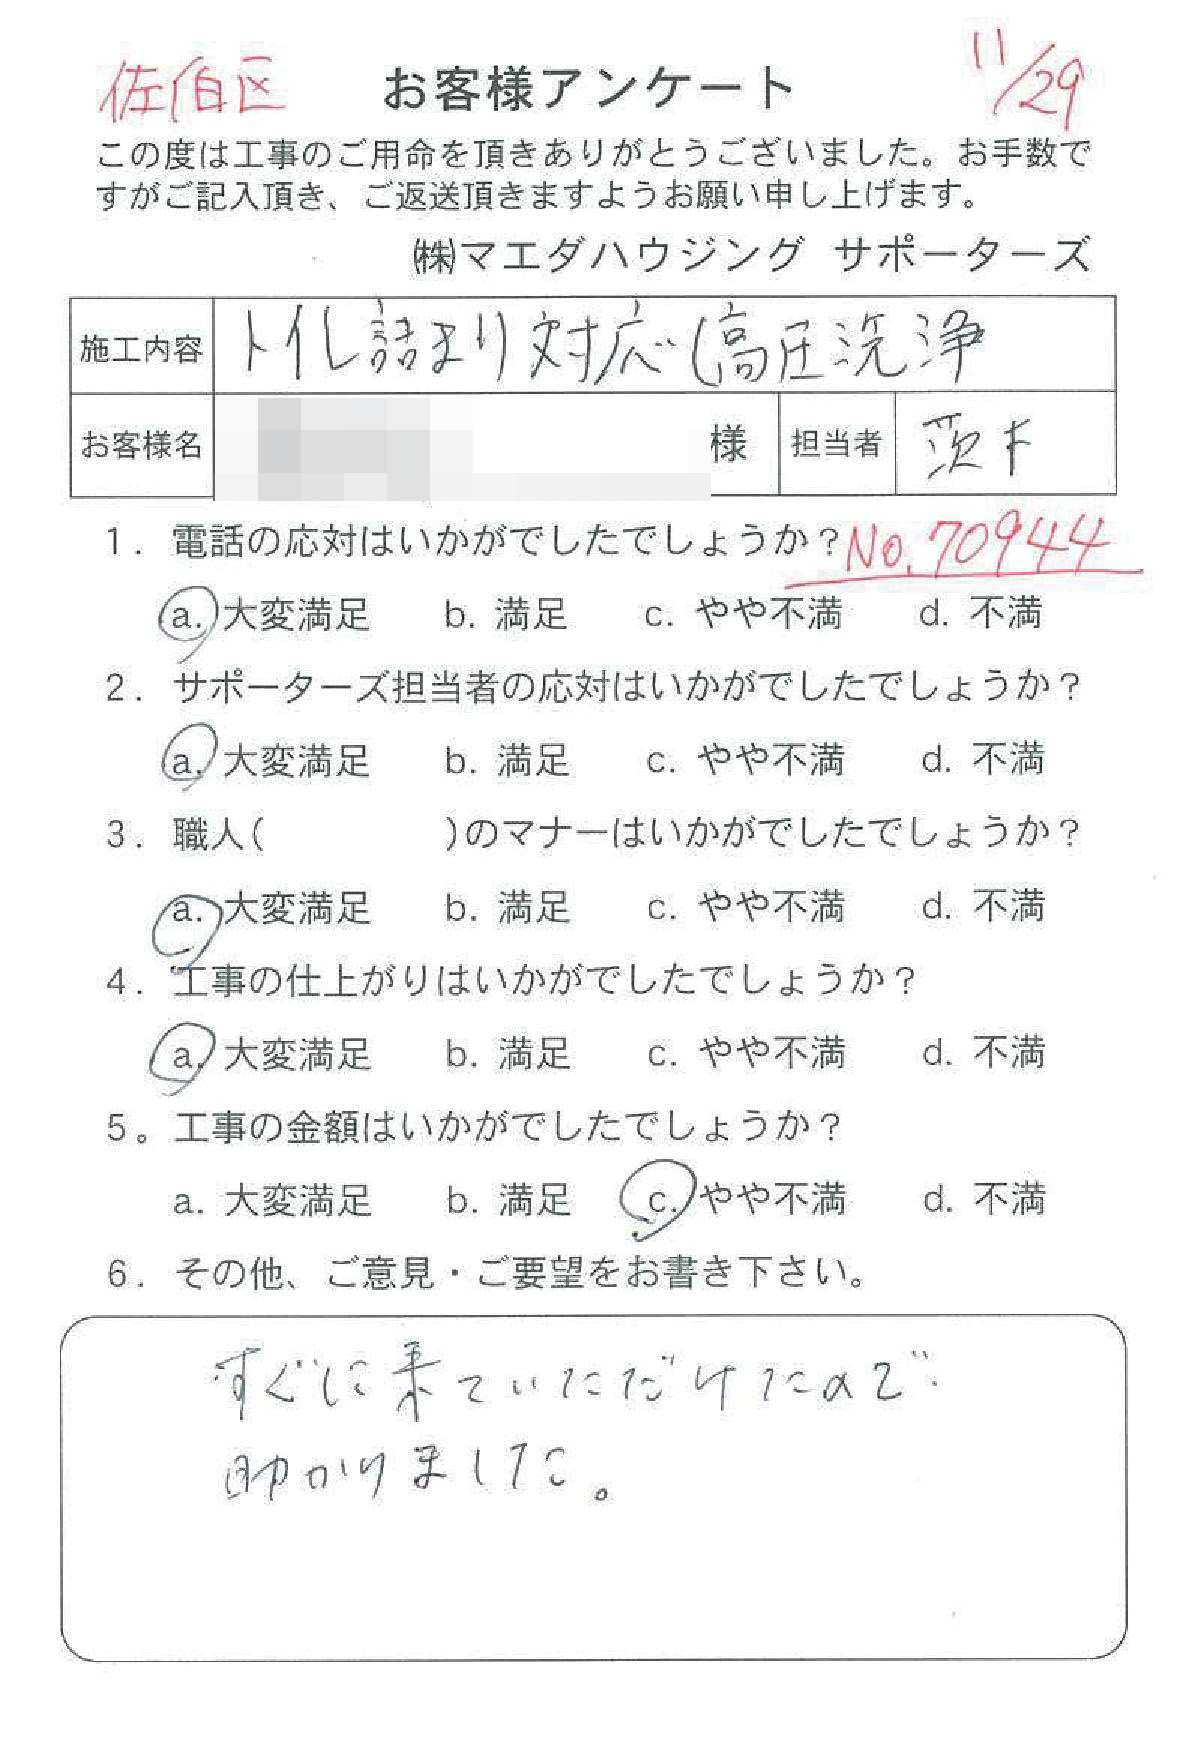 佐伯区 お客様アンケート 11/29
この度は工事のご用命を頂きありがとうございました。お手数で
すがご記入頂き、ご返送頂きますようお願い申し上げます。
㈱マエダハウジング サポーターズ
施工内容 トイレ詰まり対応(高圧洗浄
お客様名 様 担当者 茨木
1. 電話の応対はいかがでしたでしょうか? No.70944
a. 大変満足 b. 満足 c. やや不満 d. 不満
2. サポーターズ担当者の応対はいかがでしたでしょうか?
a. 大変満足 b. 満足 c. やや不満 d. 不満
3. 職人( )のマナーはいかがでしたでしょうか?
a. 大変満足 b. 満足 c. やや不満 d. 不満
4. 工事の仕上がりはいかがでしたでしょうか?
a. 大変満足 b. 満足 c. やや不満 d. 不満
5。工事の金額はいかがでしたでしょうか?
a. 大変満足 b. 満足 c. やや不満 d. 不満
6. その他、ご意見・ご要望をお書き下さい。
すぐに来ていただけたので
助かりました。